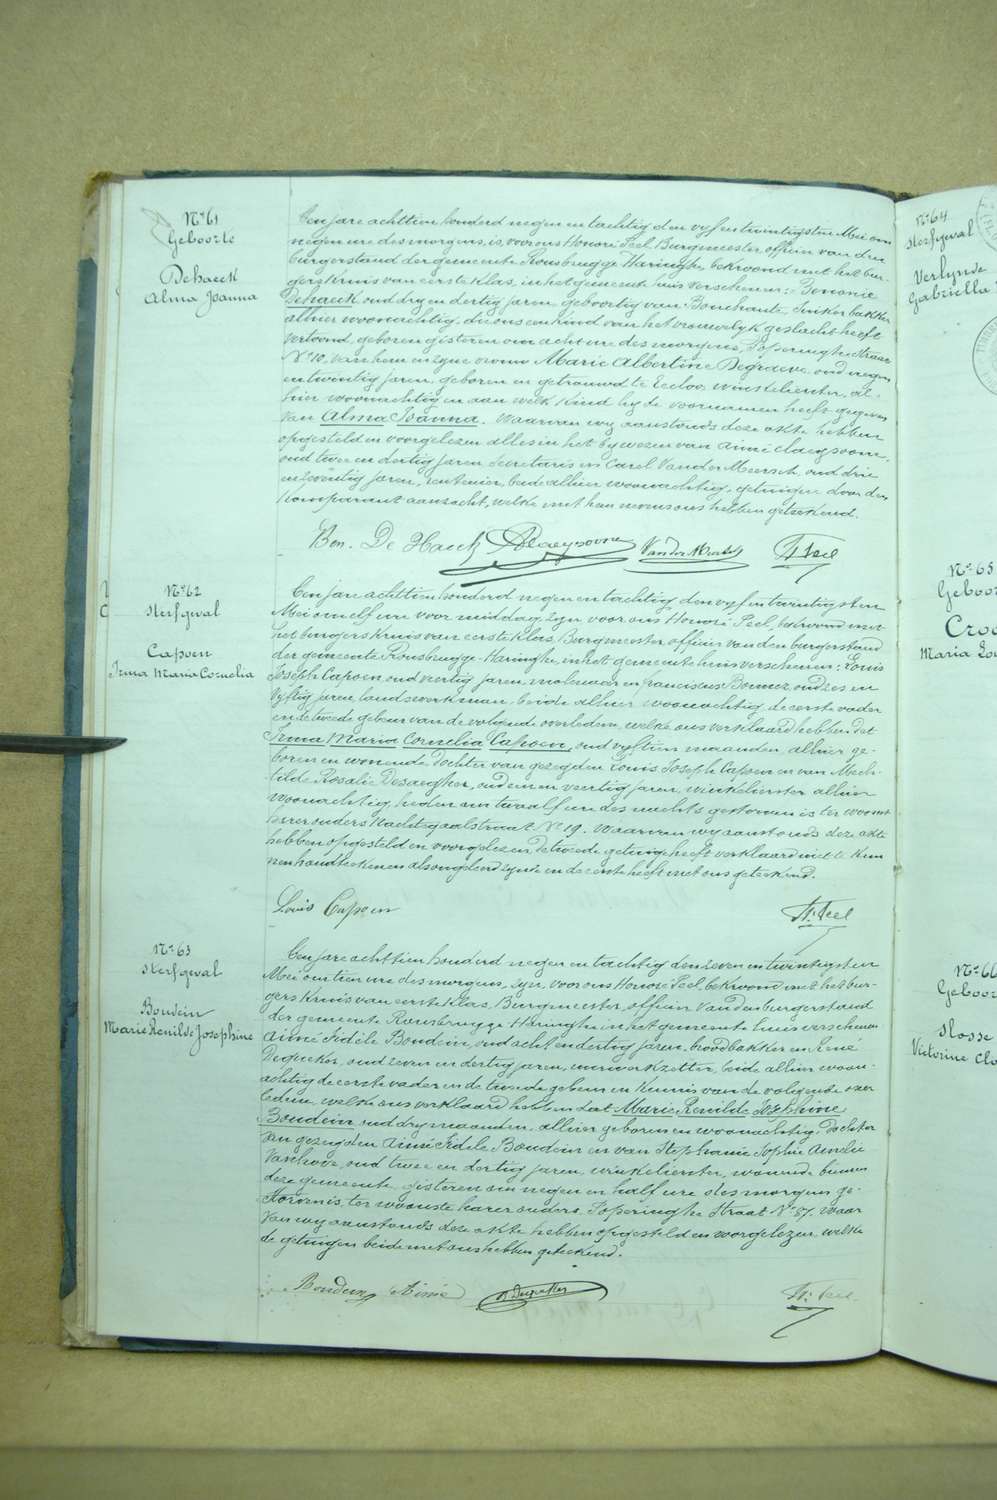 N° 61
Geboorte
Dehaeck
Alma Joanna
Ten jare achttien honderd negen en tachtig den vyf en twintigsten Mei om
negen ure des morgens, is voor ons Honoré Peel, Burgmeester officier van den
burgerstand der gemeente Rousbrugge-Haringhe, bekroond met het bur-
gers Kruis van eerste klas, in het gemeente huis verschenen:
Dehaeck oud dry en dertig jaren, geboortig van Bouchaute, suikerbakker
alhier woonachtig, die ons een kind van het vrouwelyk geslacht heeft
vertoond, geboren gisteren om acht ure des morgens, Poperinghe Straat
N° 10, van hem en zyne vrouw Marie Albertine Degraeve, oud negen
en twintig jaren, geboren en getrouwd te Eecloo, winkelierster, al-
hier woonachtig en aan welk kind hy de voornamen heeft gegeven
van Alma Joanna. Waarvan wy aanstonds deze akte hebben
opgesteld en voorgelezen alles in het bywezen van Aimé Claeysoone,
oud twee en dertig jaren, secretaris en Carel Vander Meersch, oud drie
en jaren, rentenier, beide alhier woonachtig, getuigen door den
Komparant aanzocht, welke met hem nevens ons hebben geteekend.
Ben. De Haeck AClaeysoone VanderMeersch H. Peel
N° 62
Sterfgeval
Capoen
Irma Maria Cornelia
Ten jare achttien honderd negen en tachtig, den vyf en twintigsten
Mei om elf ure voor middag, zyn voor ons Honoré Peel, bekroond met
het burgers Kruis van eerste klas, Burgmeester, officier van den burgerstand
der gemeente Rousbrugge-Haringhe, in het gemeente huis verschenen: Louis
Joseph Capoen, oud veertig jaren, molenaar en Franciscus oud zes en
vyftig jaren, landswerkman, beide alhier woonachtig, de eerste vader
en de tweede gebuur van de volgende overledene, welke ons verklaard hebben dat
Irma Maria Cornelia Capoen, oud vyftien maanden, alhier ge-
boren en wonende, dochter van gezegden Louis Joseph Capoen en van Mech-
tilde Rosalie Desaegher, oud een en veertig jaren, winkelierster, alhier
woonachtig, heden om twaalf ure des nachts gestorven is, ter woonst
harer ouders Nachtegaalstraat N° 19. Waarvan wy aanstonds deze akte
hebben opgesteld en voorgelezen, de tweede getuige heeft verklaard niet te kun-
nen handteekenen als ongeleerd zynde en de eerste heeft met ons geteekend.
Louis Capoen H. Peel
N° 63
Sterfgeval
Boudein
Marie Renilde Josephine
Ten jare achttien honderd negen en tachtig den zeven en twintigsten
Mei om tien ure des morgens, zyn voor ons Honoré Peel, bekroond met het bur-
gers Kruis van eerste klas, Burgmeester, officier van den burgerstand
der gemeente Rousbrugge-Haringhe in het gemeente huis verschenen
Aimé Fidèle Boudein, oud acht en dertig jaren, broodbakker en René
Dequeker, oud zeven en dertig jaren, uurwerkzetter, beide alhier woon-
achtig de eerste vader en de tweede gebuur en kennis van de volgende over-
ledene, welke ons verklaard hebben dat Marie Renilde Josephine
Boudein, oud dry maanden, alhier geboren en woonachtig, dochter
van gezegden Aimé Fidele Boudein en van Stephanie Sophie Amelie
Vanhove, oud twee en dertig jaren, winkelierster, wonende binnen
deze gemeente, gisteren om negen en half ure des morgens ge-
storven is, ter woonste harer ouders, Poperinghe Straat N° 87. Waar
van wy aanstonds deze akte hebben opgesteld en voorgelezen, welke
de getuigen beide met ons hebben geteekend.
Boudein Aimé R Dequeker H. Peel
N° 64
Sterfgeval
Verlynde
Gabriella
N° 65
Geboor
Croc
Maria Lou
N° 66
Geboor
Slosse
Victorine Clo